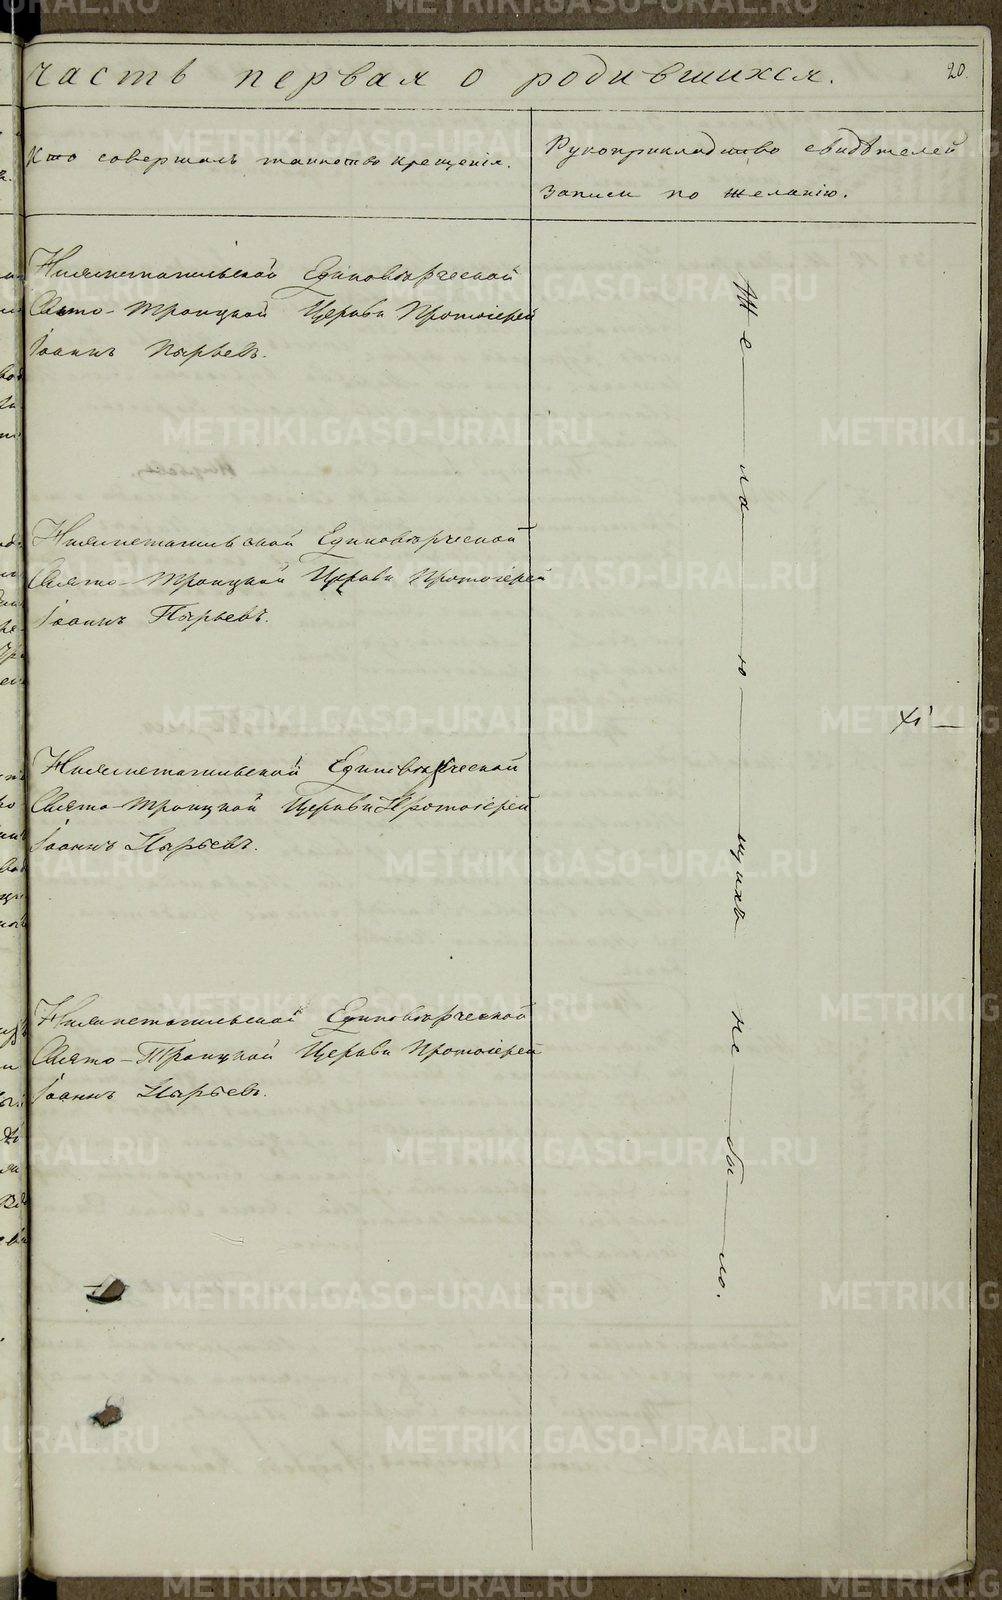 часть первая о родившихся.
20.
Кто совершалъ таинство крещенія.
Рукоприкладство свидѣтелей
записи по желанію.
Нижнетагильской Единовѣрческой
Свято-Троицкой Церкви Протоіерей
Іоаннъ Пырьевъ.
Нижнетагильской Единовѣрческой
Свято-Троицкой Церкви Протоіерей
Іоаннъ Пырьевъ.
Нижнетагильской Единовѣрческой
Свято-Троицкой Церкви Протоіерей
Іоаннъ Пырьевъ.
Нижнетагильской Единовѣрческой
Свято-Троицкой Церкви Протоіерей
Іоаннъ Пырьевъ.
Же—ла—ю—щихъ не—бы—ло.
METRIKI.GASO-URAL.RU